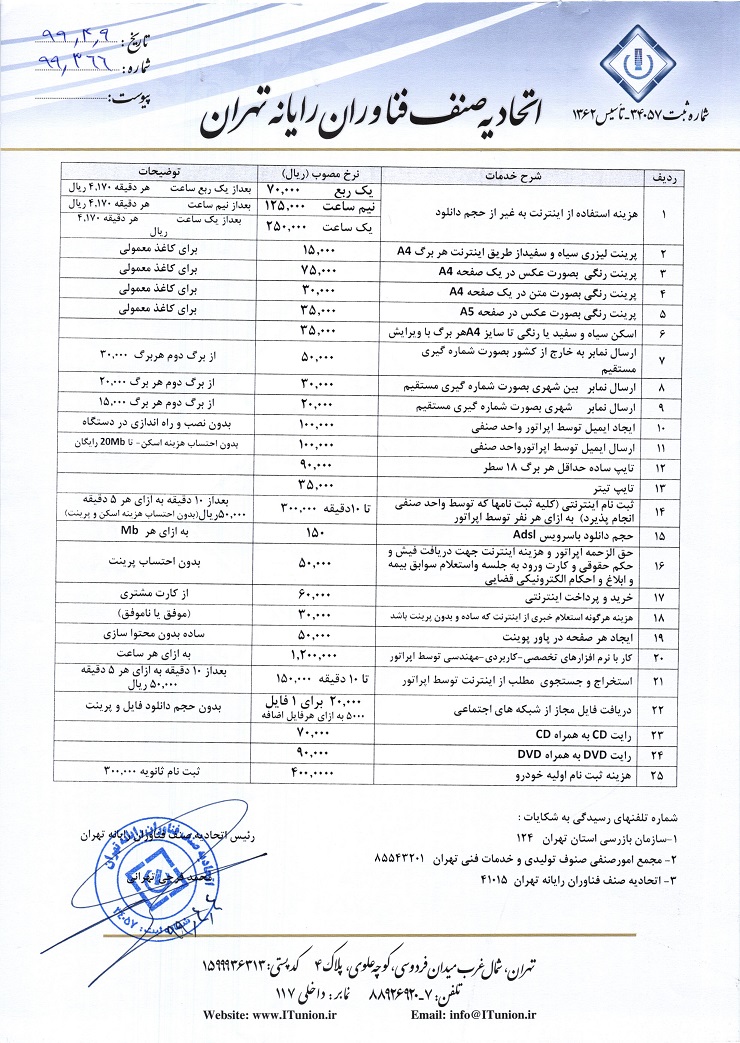 تاریخ: ۹۹,۴,۹
شماره: ۹۹,۳۶۶
پیوست:
شماره ثبت ۳۴۰۵۷-تأسیس ۱۳۶۲
اتحادیه صنف فناوران رایانه تهران
ردیف شرح خدمات نرخ مصوب (ریال) توضیحات
۱ هزینه استفاده از اینترنت به غیر از حجم دانلود
یک ربع ۷۰,۰۰۰ بعداز یک ربع ساعت هر دقیقه ۴,۱۷۰ ریال
نیم ساعت ۱۲۵,۰۰۰ بعداز نیم ساعت هر دقیقه ۴,۱۷۰ ریال
یک ساعت ۲۵۰,۰۰۰ بعداز یک ساعت هر دقیقه ۴,۱۷۰
ریال
۲ پرینت لیزری سیاه و سفیداز طریق اینترنت هر برگ A4 ۱۵,۰۰۰ برای کاغذ معمولی
۳ پرینت رنگی بصورت عکس در یک صفحه A4 ۷۵,۰۰۰ برای کاغذ معمولی
۴ پرینت رنگی بصورت متن در یک صفحه A4 ۳۰,۰۰۰ برای کاغذ معمولی
۵ پرینت رنگی بصورت عکس در صفحه A5 ۳۵,۰۰۰ برای کاغذ معمولی
۶ اسکن سیاه و سفید یا رنگی تا سایز A4هر برگ با ویرایش ۳۵,۰۰۰
۷ ارسال نمابر به خارج از کشور بصورت شماره گیری
مستقیم ۵۰,۰۰۰ از برگ دوم هربرگ ۳۰,۰۰۰
۸ ارسال نمابر بین شهری بصورت شماره گیری مستقیم ۳۰,۰۰۰ از برگ دوم هر برگ ۲۰,۰۰۰
۹ ارسال نمابر شهری بصورت شماره گیری مستقیم ۲۰,۰۰۰ از برگ دوم هر برگ ۱۵,۰۰۰
۱۰ ایجاد ایمیل توسط اپراتور واحد صنفی ۱۰۰,۰۰۰ بدون نصب و راه اندازی در دستگاه
۱۱ ارسال ایمیل توسط اپراتورواحد صنفی ۱۰۰,۰۰۰ بدون احتساب هزینه اسکن- تا 20Mb رایگان
۱۲ تایپ ساده حداقل هر برگ ۱۸ سطر ۹۰,۰۰۰
۱۳ تایپ تیتر ۳۵,۰۰۰
۱۴ ثبت نام اینترنتی (کلیه ثبت نامها که توسط واحد صنفی
انجام پذیرد) به ازای هر نفر توسط اپراتور تا ۱۰دقیقه ۳۰۰,۰۰۰ بعداز ۱۰ دقیقه به ازای هر ۵ دقیقه
۵۰,۰۰۰ریال(بدون احتساب هزینه اسکن و پرینت)
۱۵ حجم دانلود باسرویس Adsl ۱۵۰ به ازای هر Mb
۱۶ حق الزحمه اپراتور و هزینه اینترنت جهت دریافت فیش و
حکم حقوقی و کارت ورود به جلسه واستعلام سوابق بیمه
و ابلاغ و احکام الکترونیکی قضایی ۵۰,۰۰۰ بدون احتساب پرینت
۱۷ خرید و پرداخت اینترنتی ۶۰,۰۰۰ از کارت مشتری
۱۸ هزینه هرگونه استعلام خبری از اینترنت که ساده و بدون پرینت باشد ۳۰,۰۰۰ (موفق یا ناموفق)
۱۹ ایجاد هر صفحه در پاور پوینت ۵۰,۰۰۰ ساده بدون محتوا سازی
۲۰ کار با نرم افزارهای تخصصی-کاربردی-مهندسی توسط اپراتور ۱,۲۰۰,۰۰۰ به ازای هر ساعت
۲۱ استخراج و جستجوی مطلب از اینترنت توسط اپراتور تا ۱۰ دقیقه ۱۵۰,۰۰۰ بعداز ۱۰ دقیقه به ازای هر ۵ دقیقه
۵۰,۰۰۰ ریال
۲۲ دریافت فایل مجاز از شبکه های اجتماعی ۲۰,۰۰۰ برای ۱ فایل
۵۰۰۰ به ازای هرفایل اضافه بدون حجم دانلود فایل و پرینت
۲۳ رایت CD به همراه CD ۷۰,۰۰۰
۲۴ رایت DVD به همراه DVD ۹۰,۰۰۰
۲۵ هزینه ثبت نام اولیه خودرو ۴۰۰,۰۰۰۰ ثبت نام ثانویه ۳۰۰,۰۰۰
شماره تلفنهای رسیدگی به شکایات :
۱-سازمان بازرسی استان تهران ۱۲۴
۲- مجمع امورصنفی صنوف تولیدی و خدمات فنی تهران ۸۵۵۴۳۲۰۱
۳- اتحادیه صنف فناوران رایانه تهران ۴۱۰۱۵
رئیس اتحادیه صنف فناوران رایانه تهران
محمد فرجی تهرانی
اتحادیه صنف فناوران رایانه تهران
شماره ثبت: ۳۴۰۵۷
تهران، شمال غرب میدان فردوسی، کوچه علوی، پلاک ۴ کدپستی: ۱۵۹۹۹۳۶۳۱۳
تلفن: ۷-۸۸۹۲۶۹۲۰ نمابر: داخلی ۱۱۷
Website: www.ITunion.ir Email: info@ITunion.ir